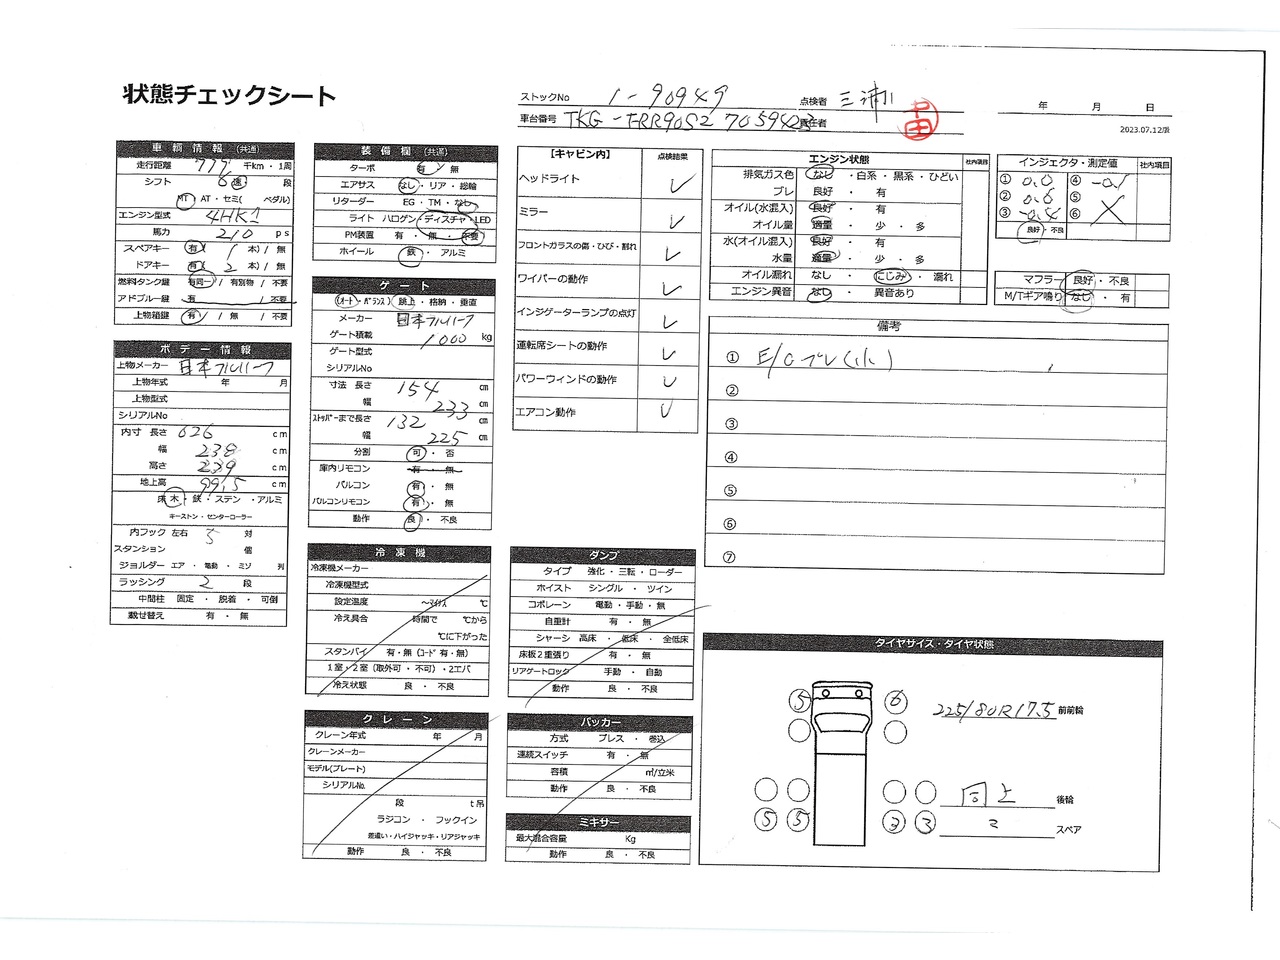 状態チェックシート
ストックNo 1-90949 点検者 三浦
車台番号 TKG-FRR90S2 7059423 責任者
年 月 日
2023.07.12版
車輌情報 (共通)
走行距離 777 千km・1周
シフト 6 速 段
MT・AT・セミ( ペダル)
エンジン型式 4HK1
馬力 210 ps
スペアキー 有( 1 本) / 無
ドアキー 有( 2 本) / 無
燃料タンク鍵 有同一 / 有別物 / 不要
アドブルー鍵 有 / 不要
上物箱鍵 有 / 無 / 不要
ボデー情報
上物メーカー 日本フルハーフ
上物年式 年 月
上物型式
シリアルNo
内寸 長さ 626 cm
幅 238 cm
高さ 239 cm
地上高 99.5 cm
床 木・鉄・ステン・アルミ
キーストン・センターコーラー
内フック 左右 5 対
スタンション 個
ジョルダー エア・電動・ミゾ 列
ラッシング 2 段
中間柱 固定・脱着・可倒
載せ替え 有・無
装備欄 (共通)
ターボ 有・無
エアサス なし・リア・総輪
リターダー EG・TM・なし
ライト ハロゲン・ディスチャ・LED
PM装置 有・無・不要
ホイール 鉄・アルミ
ゲート
(オート・バランス) 跳上・格納・垂直
メーカー 日本フルハーフ
ゲート積載 1000 kg
ゲート型式
シリアルNo
寸法 長さ 154 cm
幅 233 cm
ストッパーまで長さ 132 cm
幅 225 cm
分割 可・否
庫内リモコン 有・無
バルコン 有・無
バルコンリモコン 有・無
動作 良・不良
冷凍機
冷凍機メーカー
冷凍機型式
設定温度 ～マイナス ℃
冷え具合 時間で ℃から
℃に下がった
スタンバイ 有・無 (コード 有・無)
1室・2室 (取外可・不可)・2エバ
冷え状態 良・不良
クレーン
クレーン年式 年 月
クレーンメーカー
モデル(プレート)
シリアルNo.
段 t吊
ラジコン・フックイン
差違い・ハイジャッキ・リアジャッキ
動作 良・不良
【キャビン内】 点検結果
ヘッドライト ✓
ミラー ✓
フロントガラスの傷・ひび・割れ ✓
ワイパーの動作 ✓
インジゲーターランプの点灯 ✓
運転席シートの動作 ✓
パワーウィンドの動作 ✓
エアコン動作 ✓
ダンプ
タイプ 強化・三転・ローダー
ホイスト シングル・ツイン
コボレーン 電動・手動・無
自重計 有・無
シャーシ 高床・低床・全低床
床板2重張り 有・無
リアゲートロック 手動・自動
動作 良・不良
パッカー
方式 プレス・巻込
連続スイッチ 有・無
容積 ㎥/立米
動作 良・不良
ミキサー
最大混合容量 Kg
動作 良・不良
エンジン状態 社内項目
排気ガス色 なし・白系・黒系・ひどい
ブレ 良好・有
オイル(水混入) 良好・有
オイル量 適量・少・多
水(オイル混入) 良好・有
水量 適量・少・多
オイル漏れ なし・にじみ・漏れ
エンジン異音 なし・異音あり
インジェクタ・測定値 社内項目
① 0.0 ④ -0.1
② 0.6 ⑤
③ -0.4 ⑥
良好・不良
マフラー 良好・不良
M/Tギア鳴り なし・有
備考
① E/Gブレ(小)
②
③
④
⑤
⑥
⑦
タイヤサイズ・タイヤ状態
5 6 225/80R17.5 前前輪
同上 後輪
5 5 3 3 2 スペア